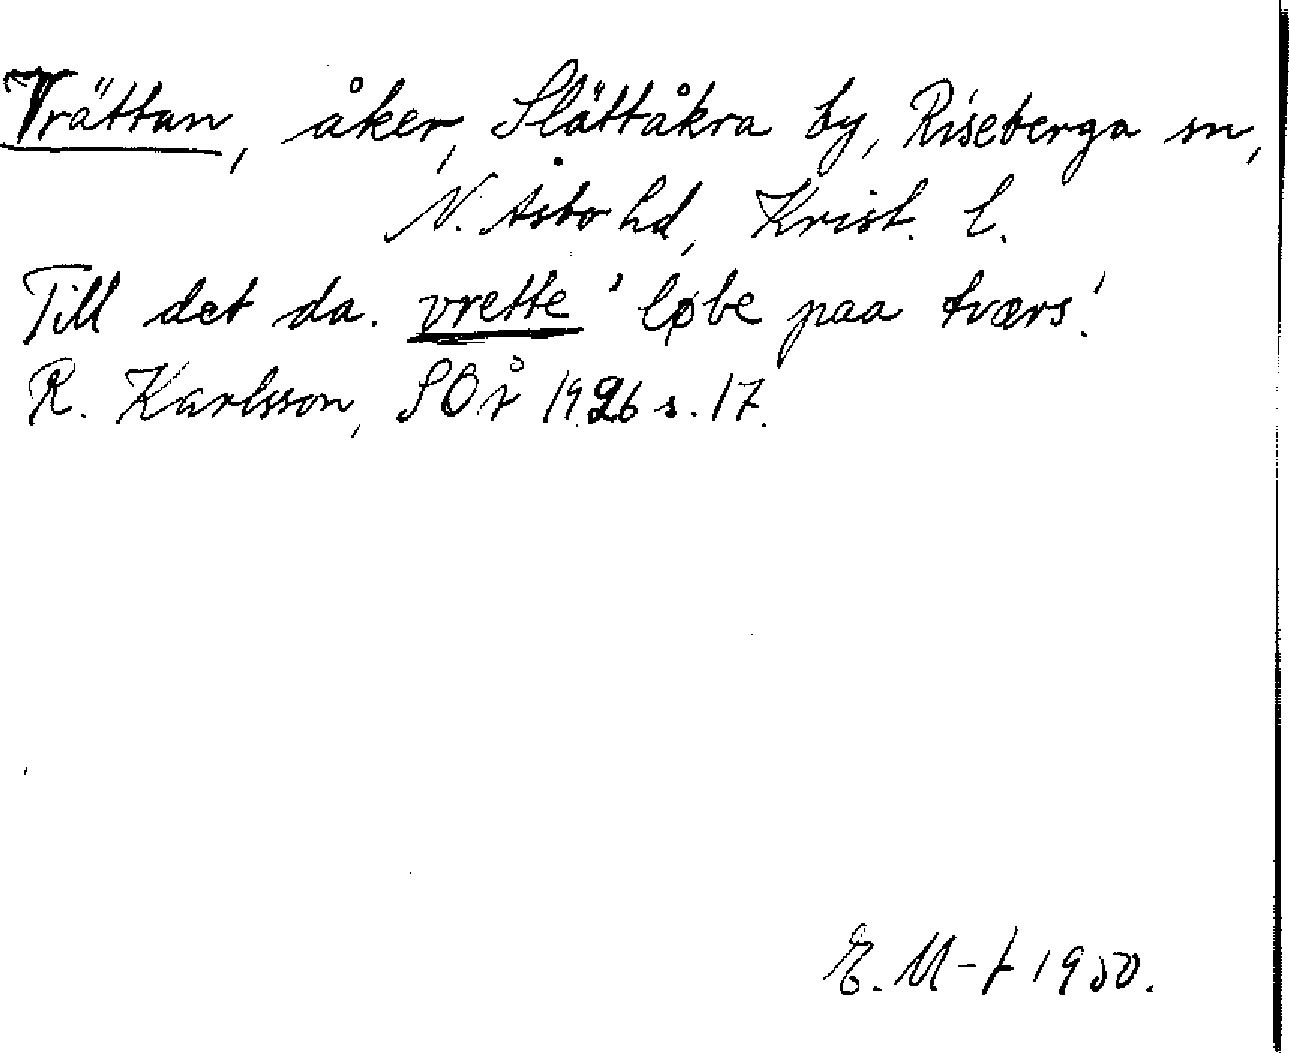 Vrättan, åker, Slättåkra by, Riseberga sn,
N. Åsbo hd, Krist. l.
Till det da. vrette 'løbe paa tværs'.
R. Karlsson, SOÅ 1926 s. 17.
E. M-t 1950.